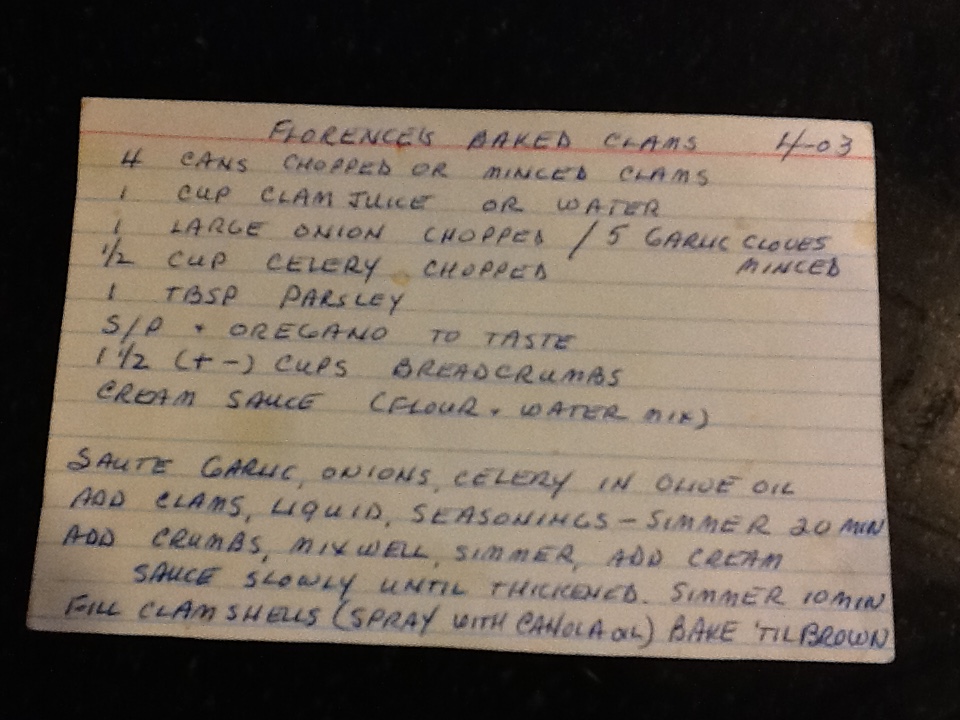 FLORENCE'S BAKED CLAMS 4-03
4 CANS CHOPPED OR MINCED CLAMS
1 CUP CLAM JUICE OR WATER
1 LARGE ONION CHOPPED / 5 GARLIC CLOVES
MINCED
1/2 CUP CELERY CHOPPED
1 TBSP PARSLEY
S/P + OREGANO TO TASTE
1 1/2 (+ -) CUPS BREADCRUMBS
CREAM SAUCE (FLOUR + WATER MIX)
SAUTE GARLIC, ONIONS, CELERY IN OLIVE OIL
ADD CLAMS, LIQUID, SEASONINGS - SIMMER 20 MIN
ADD CRUMBS, MIX WELL, SIMMER, ADD CREAM
SAUCE SLOWLY UNTIL THICKENED. SIMMER 10 MIN
FILL CLAM SHELLS (SPRAY WITH CANOLA OIL) BAKE 'TIL BROWN